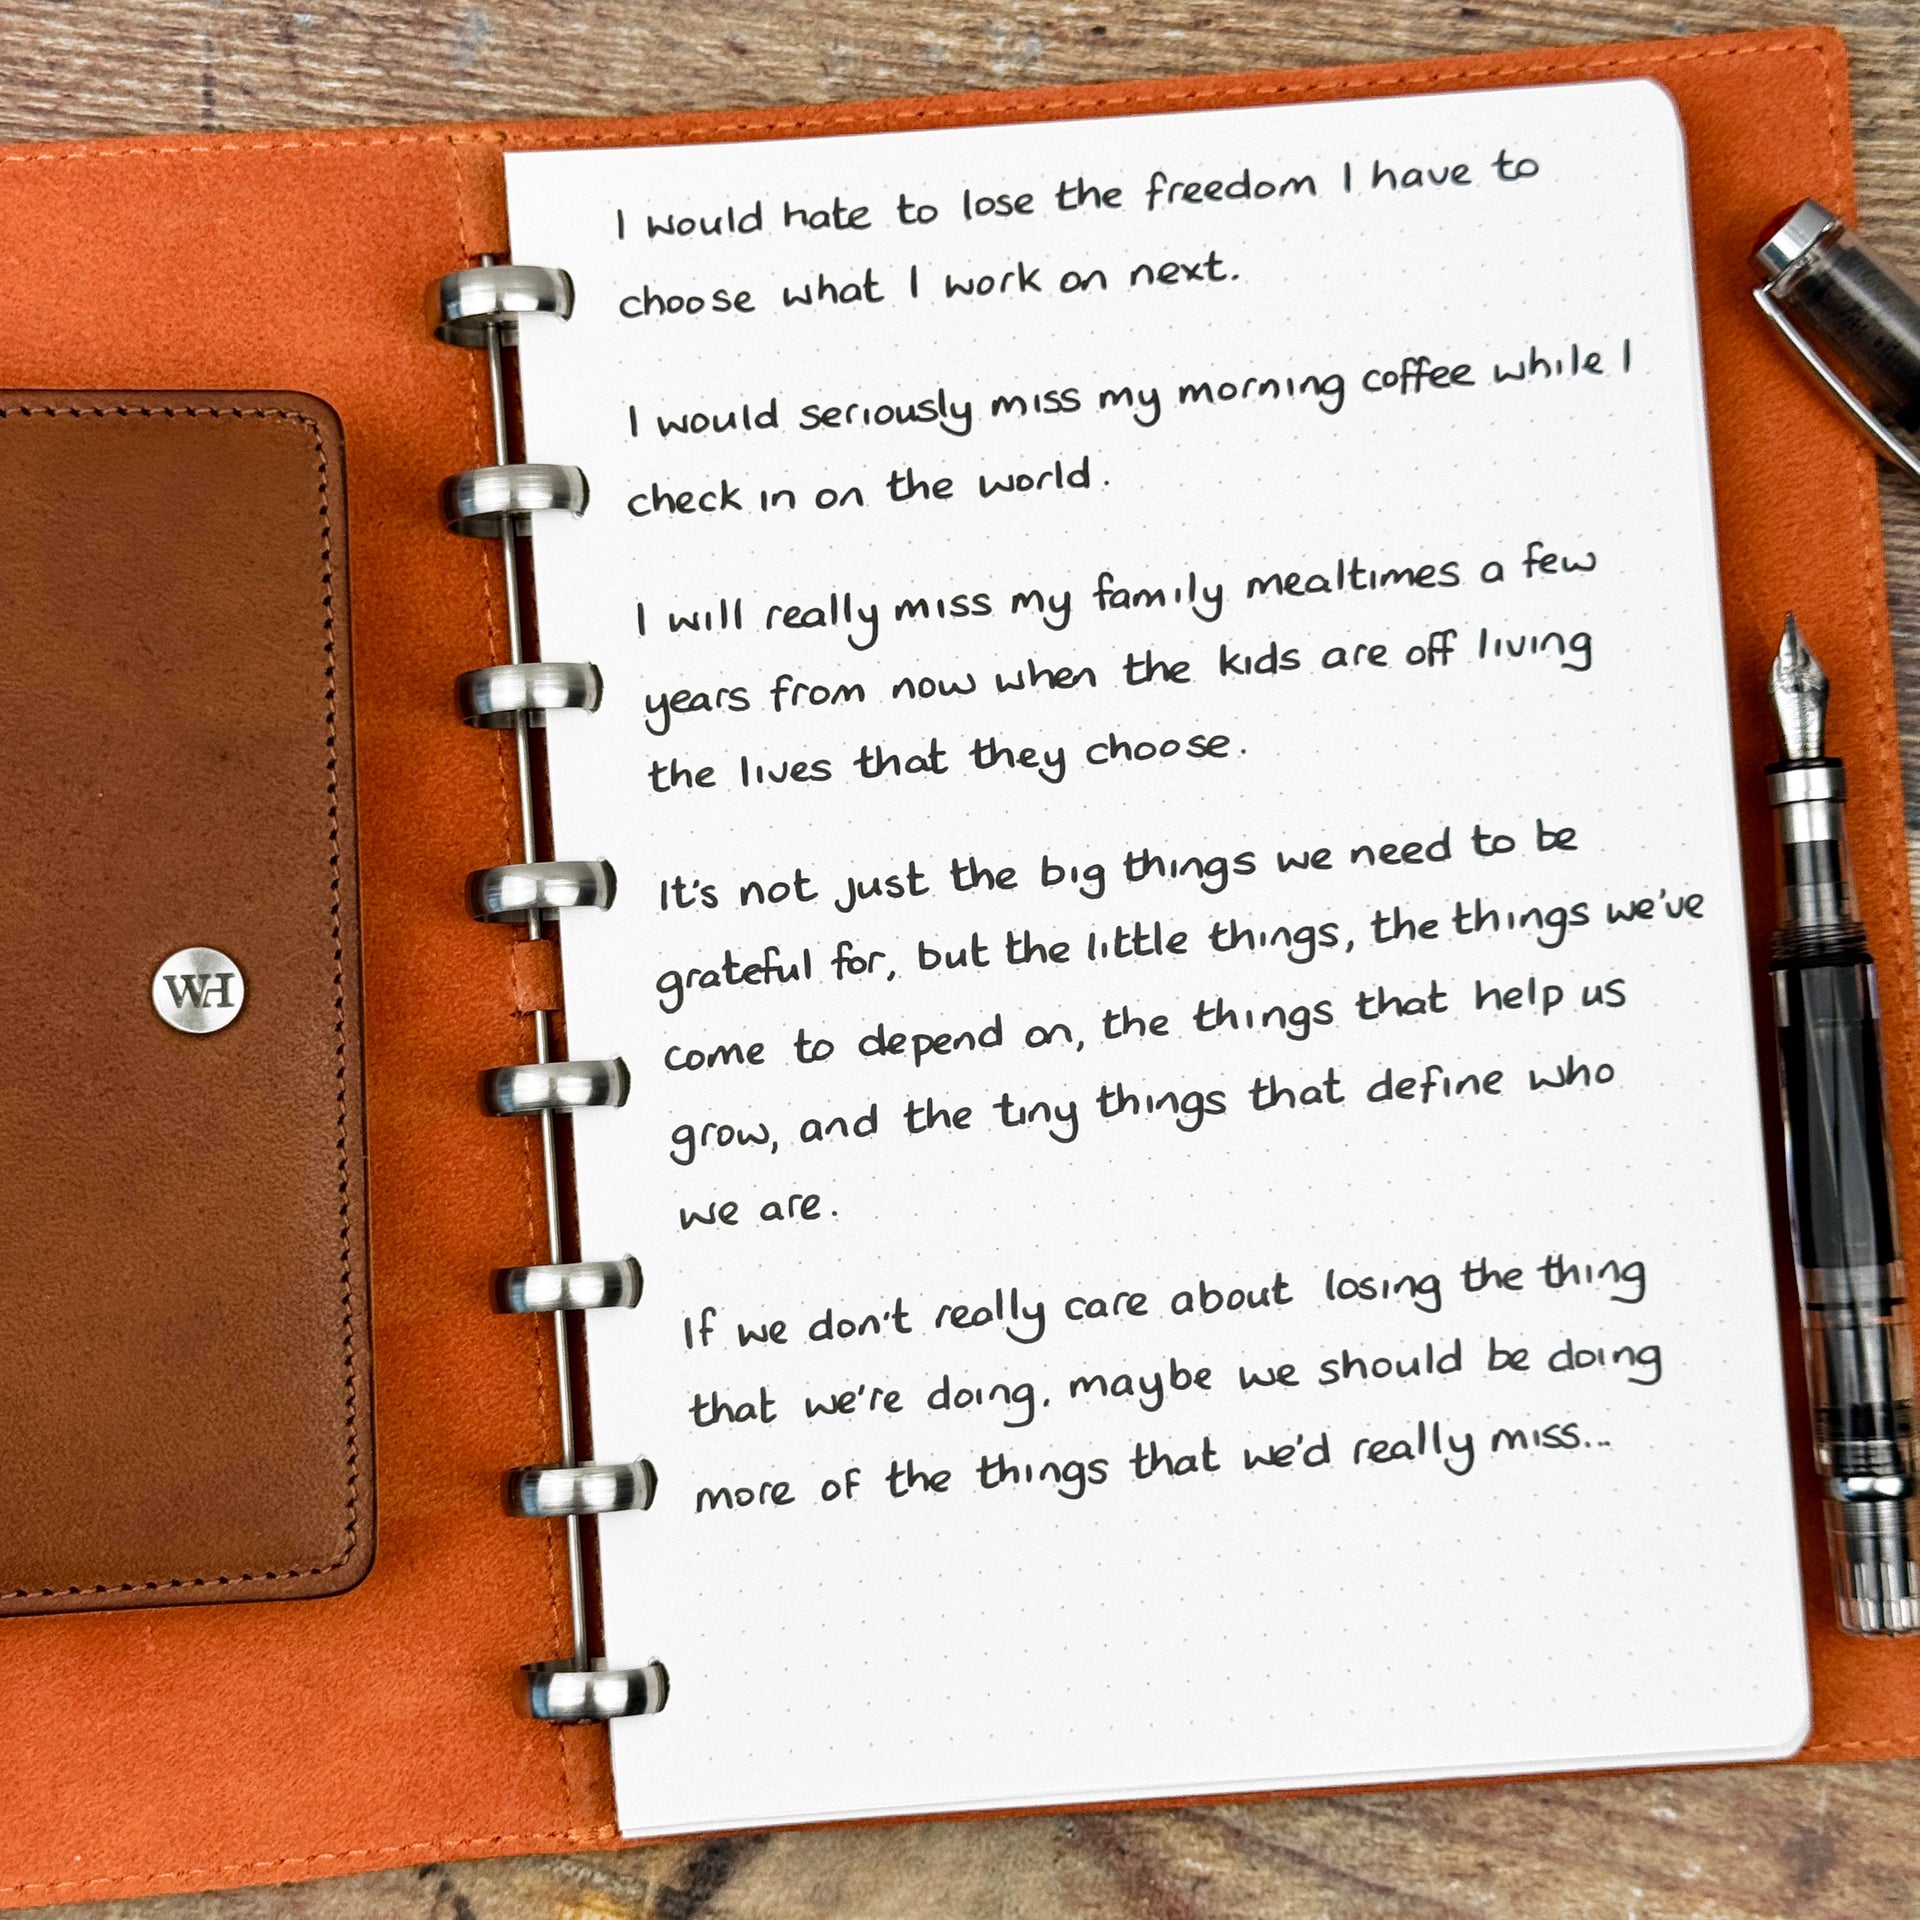 I would hate to lose the freedom I have to
choose what I work on next.
I would seriously miss my morning coffee while I
check in on the world.
I will really miss my family mealtimes a few
years from now when the kids are off living
the lives that they choose.
It's not just the big things we need to be
grateful for, but the little things, the things we've
come to depend on, the things that help us
grow, and the tiny things that define who
we are.
If we don't really care about losing the thing
that we're doing, maybe we should be doing
more of the things that we'd really miss...
WH